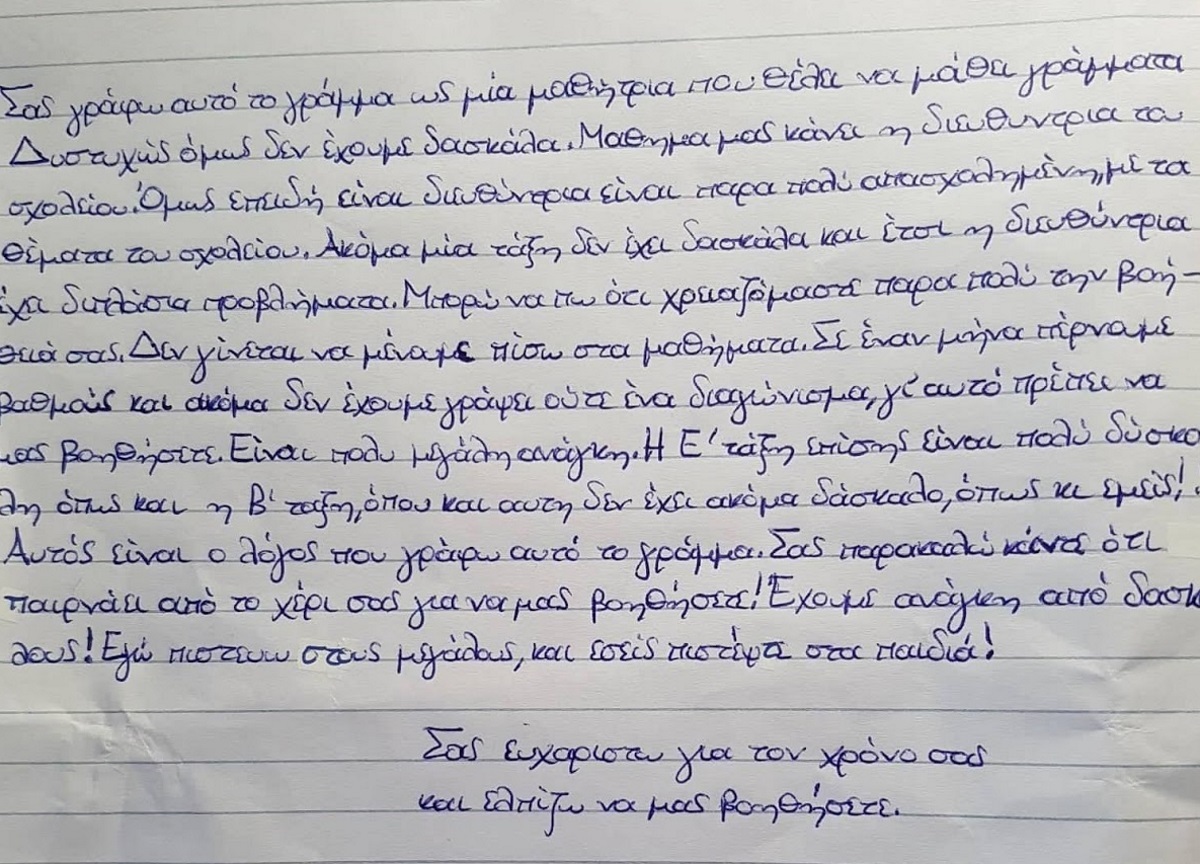 Σας γράφω αυτό το γράμμα ως μία μαθήτρια που θέλει να μάθει γράμματα
Δυστυχώς όμως δεν έχουμε δασκάλα. Μαθημα μας κάνει η διευθυντρια του
σχολείου. Όμως επειδή είναι διευθύντρια είναι παρα πολύ απασχολημένη, με τα
θέματα του σχολείου. Ακόμα μία τάξη δεν έχει δασκάλα και έτσι η διευθύντρια
έχει διπλάσια προβλήματα. Μπορώ να πω ότι χρειαζόμαστε παρα πολύ την βοή-
θειά σας. Δεν γίνεται να μένουμε πίσω στα μαθήματα. Σε έναν μήνα πέρναμε
βαθμούς και ακόμα δεν έχουμε γράψει ούτε ένα διαγώνισμα, γι' αυτό πρέπει να
μας βοηθήσετε. Είναι πολυ μεγάλη ανάγκη. Η Ε' τάξη επίσης είναι πολύ δύσκο
λη όπως και η Β' ταξη, όπου και αυτη δεν έχει ακόμα δάσκαλο, όπως κι εμείς!
Αυτός είναι ο λόγος που γράφω αυτό το γράμμα. Σας παρακαλώ κάντε ότι
παιρνάει από το χέρι σας για να μας βοηθήσετε! Έχουμε ανάγκη από δασκ
λους! Εγώ πιστευω στους μεγάλους, και εσείς πιστέψτε στα παιδιά!
Σας ευχαριστω για τον χρόνο σας
και ελπίζω να μας βοηθήσετε.